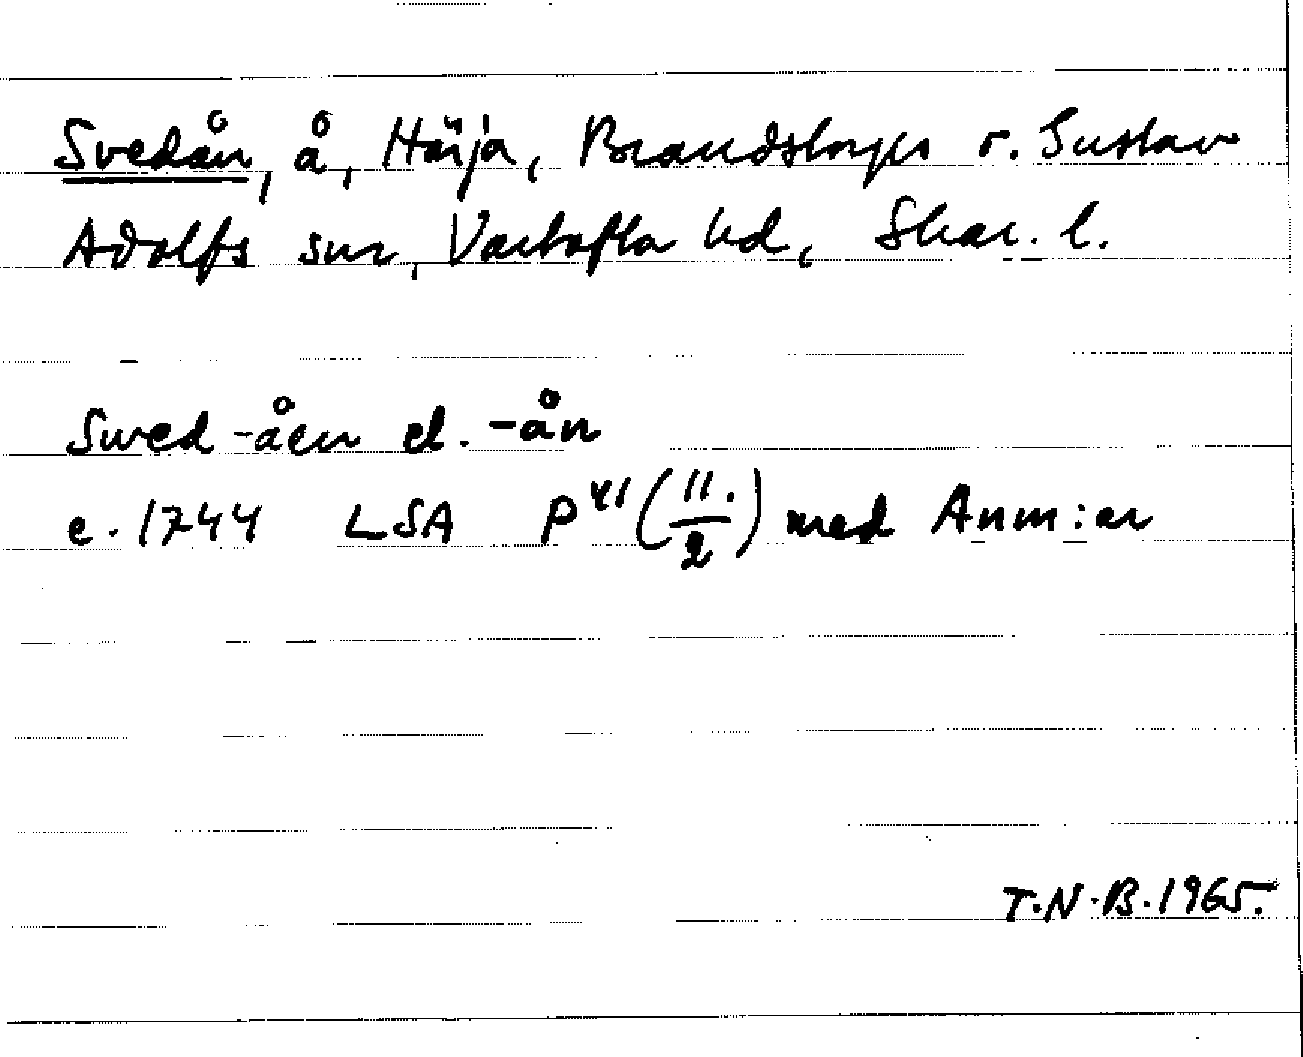 Svedån, å, Härja, Brandstorps o. Gustav
Adolfs snr, Vartofta hd, Skar. l.
Swed-åen el. -ån
c. 1744 LSA P 41 (11./2) med Anm:ar
T.N.B. 1965.